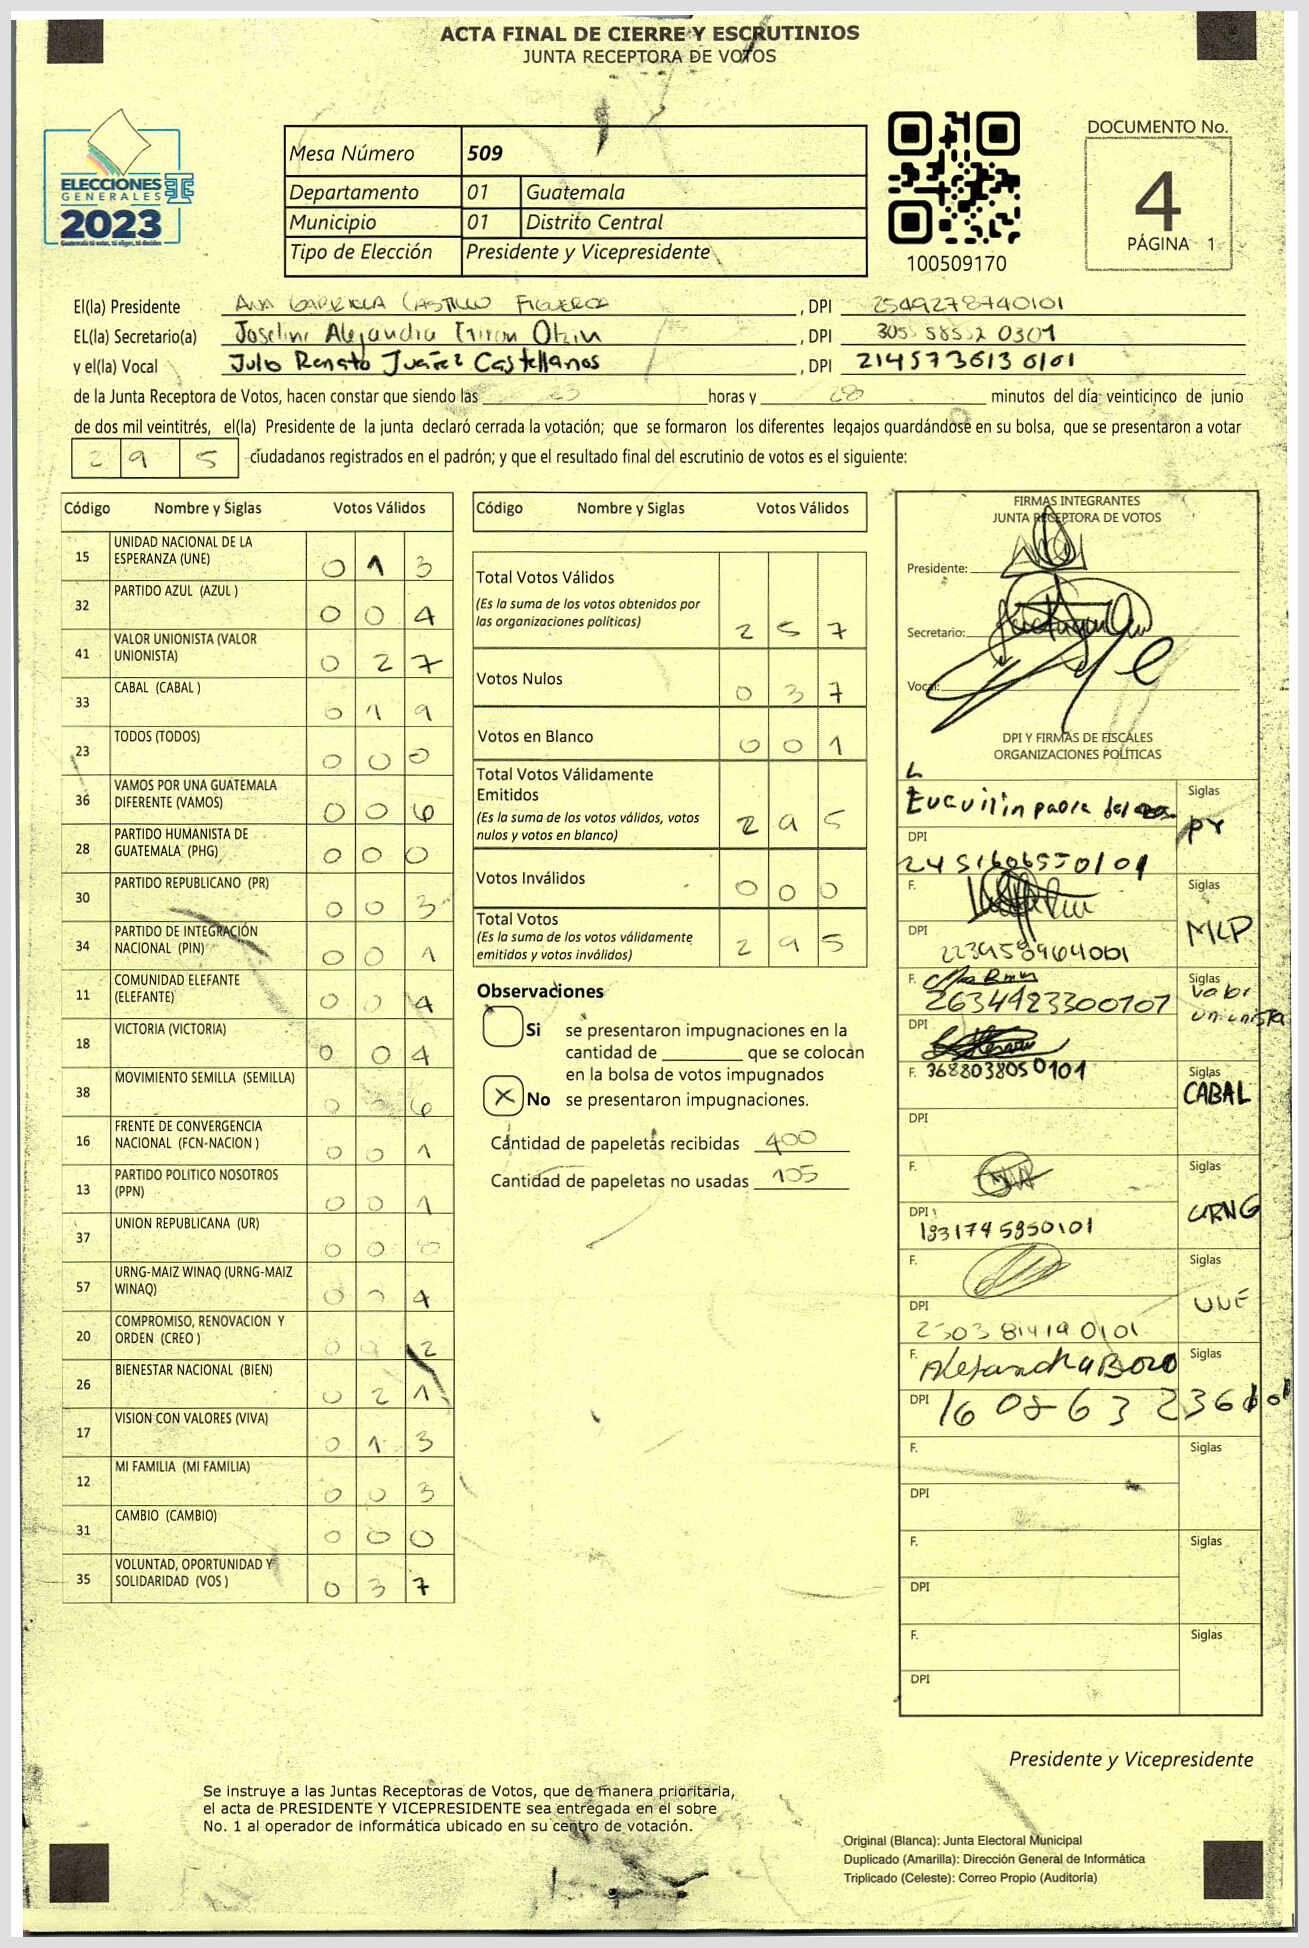 ACTA FINAL DE CIERRE Y ESCRUTINIOS
JUNTA RECEPTORA DE VOTOS
ELECCIONES
GENERALES
2023
Guatemala tú votas, tú eliges, tú decides
Mesa Número 509
Departamento 01 Guatemala
Municipio 01 Distrito Central
Tipo de Elección Presidente y Vicepresidente
100509170
DOCUMENTO No.
4
PÁGINA 1
El(la) Presidente Ana Gabriela Castillo Figueroa, DPI 2549278740101
EL(la) Secretario(a) Joseline Alejandra Otzin, DPI
y el(la) Vocal Julio Renato Juárez Castellanos, DPI 2145736130101
de la Junta Receptora de Votos, hacen constar que siendo las 23 horas y 28 minutos del día veinticinco de junio
de dos mil veintitrés, el(la) Presidente de la junta declaró cerrada la votación; que se formaron los diferentes legajos guardándose en su bolsa, que se presentaron a votar
2 9 5 ciudadanos registrados en el padrón; y que el resultado final del escrutinio de votos es el siguiente:
Código Nombre y Siglas Votos Válidos
15 UNIDAD NACIONAL DE LA ESPERANZA (UNE) 0 1 3
32 PARTIDO AZUL (AZUL ) 0 0 4
41 VALOR UNIONISTA (VALOR UNIONISTA) 0 2 7
33 CABAL (CABAL ) 0 1 9
23 TODOS (TODOS) 0 0 0
36 VAMOS POR UNA GUATEMALA DIFERENTE (VAMOS) 0 0 6
28 PARTIDO HUMANISTA DE GUATEMALA (PHG) 0 0 0
30 PARTIDO REPUBLICANO (PR) 0 0 3
34 PARTIDO DE INTEGRACIÓN NACIONAL (PIN) 0 0 1
11 COMUNIDAD ELEFANTE (ELEFANTE) 0 0 4
18 VICTORIA (VICTORIA) 0 0 4
38 MOVIMIENTO SEMILLA (SEMILLA) 0 6
16 FRENTE DE CONVERGENCIA NACIONAL (FCN-NACION ) 0 0 1
13 PARTIDO POLITICO NOSOTROS (PPN) 0 0 1
37 UNION REPUBLICANA (UR) 0 0 0
57 URNG-MAIZ WINAQ (URNG-MAIZ WINAQ) 0 4
20 COMPROMISO, RENOVACION Y ORDEN (CREO ) 0 2
26 BIENESTAR NACIONAL (BIEN) 0 2 1
17 VISION CON VALORES (VIVA) 0 1 3
12 MI FAMILIA (MI FAMILIA) 0 0 3
31 CAMBIO (CAMBIO) 0 0 0
35 VOLUNTAD, OPORTUNIDAD Y SOLIDARIDAD (VOS ) 0 3 7
Código Nombre y Siglas Votos Válidos
Total Votos Válidos 2 5 7
(Es la suma de los votos obtenidos por
las organizaciones políticas)
Votos Nulos 0 3 7
Votos en Blanco 0 0 1
Total Votos Válidamente
Emitidos 2 9 5
(Es la suma de los votos válidos, votos
nulos y votos en blanco)
Votos Inválidos 0 0 0
Total Votos 2 9 5
(Es la suma de los votos válidamente
emitidos y votos inválidos)
Observaciones
Si se presentaron impugnaciones en la
cantidad de ________ que se colocan
en la bolsa de votos impugnados
X No se presentaron impugnaciones.
Cantidad de papeletas recibidas 400
Cantidad de papeletas no usadas 105
FIRMAS INTEGRANTES
JUNTA RECEPTORA DE VOTOS
Presidente:
Secretario:
Vocal:
DPI Y FIRMAS DE FISCALES
ORGANIZACIONES POLÍTICAS
Siglas
PR
DPI
F. Siglas
MLP
DPI
F. Siglas
Valor
Unionista
2634923300707
DPI
F. 3688038050101 Siglas
CABAL
DPI
F. Siglas
URNG
DPI
1931745950101
F. Siglas
UNE
DPI
F. Siglas
DPI
F. Siglas
DPI
F. Siglas
DPI
F. Siglas
DPI
Presidente y Vicepresidente
Se instruye a las Juntas Receptoras de Votos, que de manera prioritaria,
el acta de PRESIDENTE Y VICEPRESIDENTE sea entregada en el sobre
No. 1 al operador de informática ubicado en su centro de votación.
Original (Blanca): Junta Electoral Municipal
Duplicado (Amarilla): Dirección General de Informática
Triplicado (Celeste): Correo Propio (Auditoría)